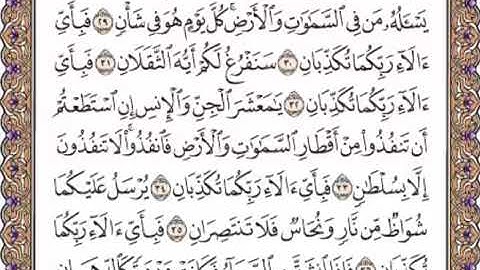 يَسْـَٔلُهُۥ مَن فِى ٱلسَّمَـٰوَٰتِ وَٱلْأَرْضِ ۚ كُلَّ يَوْمٍ هُوَ فِى شَأْنٍ ٢٩ فَبِأَىِّ
ءَالَآءِ رَبِّكُمَا تُكَذِّبَانِ ٣٠ سَنَفْرُغُ لَكُمْ أَيُّهَ ٱلثَّقَلَانِ ٣١ فَبِأَىِّ
ءَالَآءِ رَبِّكُمَا تُكَذِّبَانِ ٣٢ يَـٰمَعْشَرَ ٱلْجِنِّ وَٱلْإِنسِ إِنِ ٱسْتَطَعْتُمْ
أَن تَنفُذُوا۟ مِنْ أَقْطَارِ ٱلسَّمَـٰوَٰتِ وَٱلْأَرْضِ فَٱنفُذُوا۟ ۚ لَا تَنفُذُونَ
إِلَّا بِسُلْطَـٰنٍ ٣٣ فَبِأَىِّ ءَالَآءِ رَبِّكُمَا تُكَذِّبَانِ ٣٤ يُرْسَلُ عَلَيْكُمَا
شُوَاظٌ مِّن نَّارٍ وَنُحَاسٌ فَلَا تَنتَصِرَانِ ٣٥ فَبِأَىِّ ءَالَآءِ رَبِّكُمَا
تُكَذِّبَانِ ٣٦